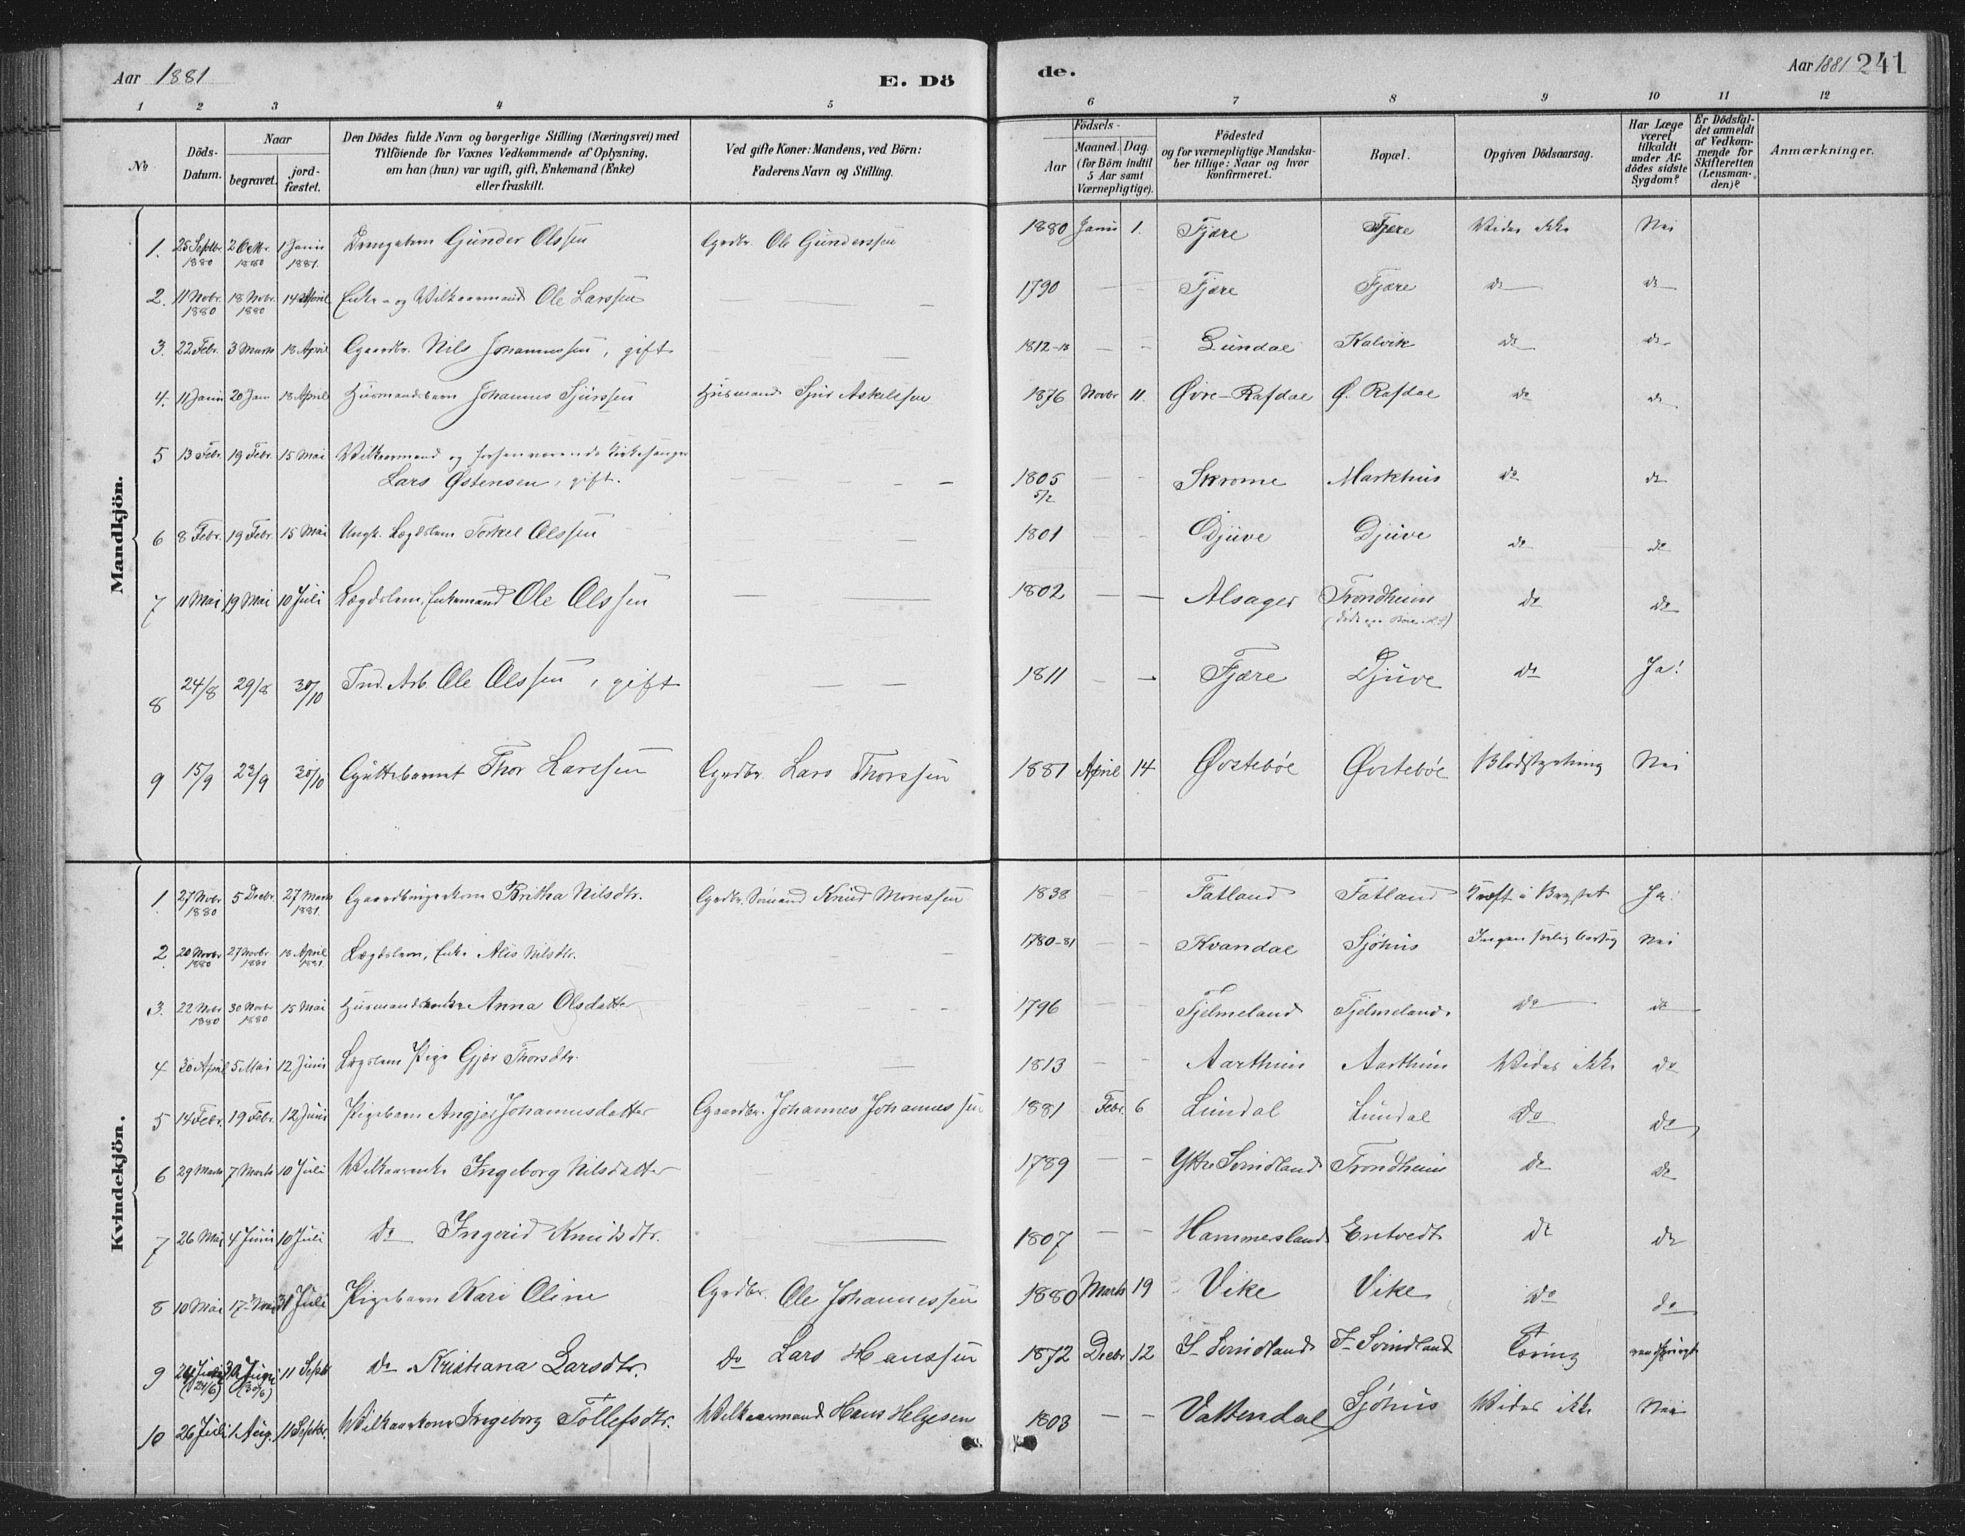 Aar 1881 E. Dö de. Aar 1881 241
1 2 3 4 5 6 7 8 9 10 11 12
No Döds-Datum. Naar begravet. jord-fæstet. Den Dödes fulde Navn og borgerlige Stilling (Næringsvei) med Tilföiende for Voxnes Vedkommende af Oplysning, om han (hun) var ugift, gift, Enkemand (Enke) eller fraskilt. Ved gifte Koner: Mandens, ved Börn: Faderens Navn og Stilling. Födsels- Aar Maaned. Dag. (for Börn indtil 5 Aar samt Værnepligtige). Födested og for værnepligtige Mandska-ber tillige: Naar og hvor konfirmeret. Bopæl. Opgiven Dödsaarsag. Har Læge været tilkaldt under Af-dödes sidste Sygdom? Er Dödsfal-det anmeldt af Vedkom-mende for Skifteretten (Lensman-den)? Anmærkninger.
Mandkjön.
1. 25 Septbr 1880 2 Octbr. 1880 1 Janu 1881. Drengebarn Gunder Olssen Grdbr. Ole Gunderssen 1880 Janu 1. Fjære Fjære Vides ikke Nei
2. 11 Novbr. 1880 18 Novbr. 1880 14 April Enke- og Vilkaarmand Ole Larssen — — 1790 — — Fjære Fjære do do
3. 22 Febr. 3 Marts 18 April Gaardbr. Nils Johannessen, gift — — 1812-13 — — Lundal Kalvik do do
4. 11 Janu 20 Jan 18 April Husmandsbarn Johannes Sjurssen Husmand Sjur Askelssen 1876 Novbr 11. Øvre-Rafdal Ø. Rafdal do do
5 13 Febr. 19 Febr. 15 Mai Vilkaarmand og forhenværende Kirkesanger
Lars Østensen, gift. — — 1805 5/2 — — Skrome Markhus do do
6 8 Febr. 19 Febr. 15 Mai Ungk. Lægdslem Torkel Olssen — 1801 Djuve Djuve do do
7 11 Mai 19 Mai 10 Juli Lægdslem, Enkemand Ole Olssen — — 1802 — — Alsager Trondheim do do
8 24/8 29/8 30/10 Ind. Arb. Ole Olssen, gift — — 1811 — — Fjære Djuve do Ja!
9 15/9 23/9 30/10 Guttebarnet Thor Larssen Grdbr. Lars Thorssen 1881 April 14 Østebøe Østebøe Blodstyrtning Nei
Kvindekjön.
1. 27 Novbr 1880 5 Decbr. 27 Marts 1881. Gaardbrugerkone Britha Nilsdtr. Grdbr. Sømand Knud Monssen 1838 — — Fatland Fatland Kræft i Brystet Ja!
2 20 Novbr 1880 27 Novbr 1880 18 April 1881 Lægdslem, Enke Alis Nilsdtr. — — 1780-81 — — Kvandal Sjøhus Ingen Nei
3. 22 Nobr 1880 30 Novbr 1880 15 Mai Husmandsenke Anna Olsdatter — — 1796 — — Fjelmeland Fjelmeland. do do
4 30 April 5 Mai 12 Juni Lægslem Pige Gjør Thorsdtr. — — 1813 — — Aarthun Aarthun Vides ikke do
5 14 Febr. 19 Febr. 12 Juni Pigebarn Angjer Johannesdatter Gaardbr. Johannes Johannessen 1881 Febr. 6 Lundal Lundal do do
6 29 Marts 7 Marts 10 Juli Vilkaarenke Ingeborg Nilsdatter — — 1789 — — Yttre Svindland Trondheim do do
7 26 Mai 4 Juni 10 Juli do Ingerid Knudsdtr. — 1807 — — Hammersland Entvedt do do
8 10 Mai 17 Mai 31 Juli Pigebarn Kari Oline Grdbr. Ole Johannessen 1880 Marts 19 Vike Vike do do
9 (24/6) (30/6) 11 Septbr do Kristiana Larsdtr. do Lars Hanssen 1872 Decbr 12 I. Svindland I. Svindland Tæring
10 26 Juli 1 Aug. 11 Septbr. Vilkaarkone Ingeborg Tollefsdtr. Vilkaarmand Hans Helgesen 1803 — — Vattendal Sjøhus Vides ikke Nei